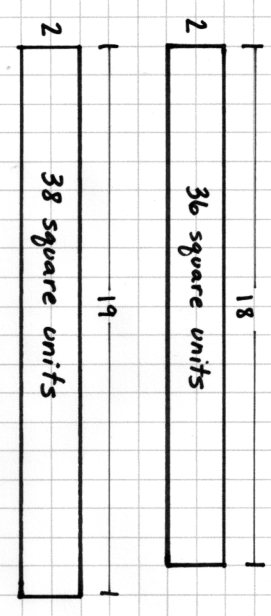 18
2
36 square units
19
2
38 square units